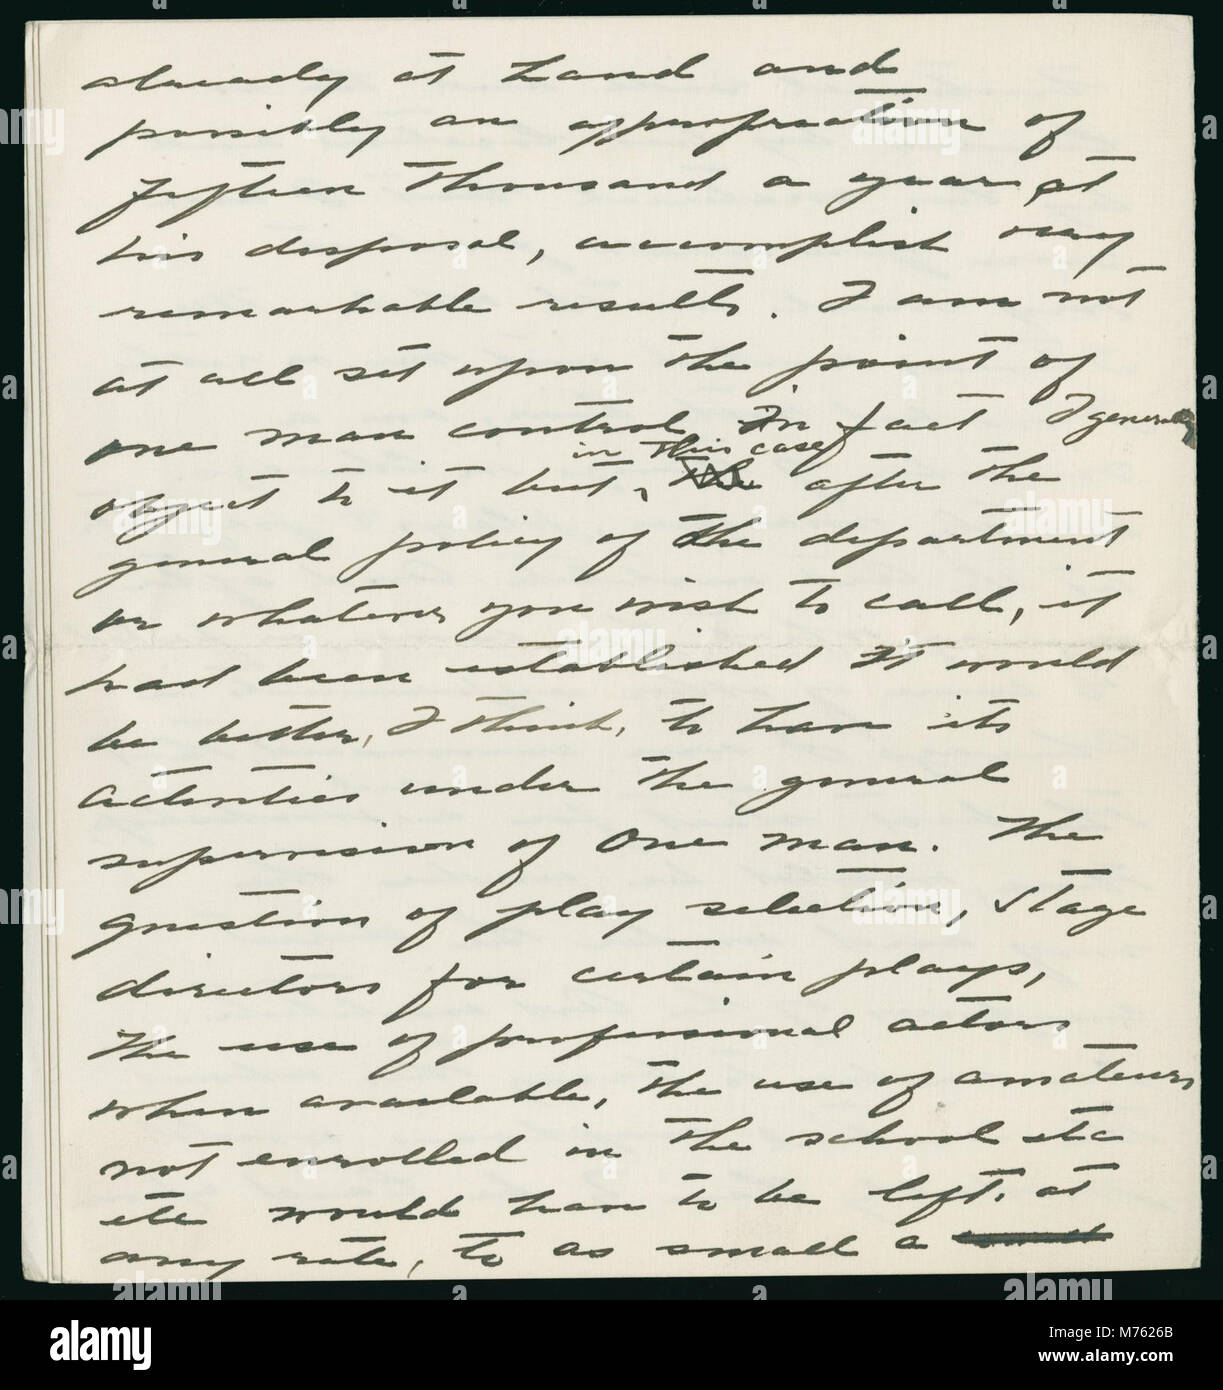 already at hand and
possibly an appropriation of
fifteen thousand a year at
his disposal, accomplish very
remarkable results. I am not
at all set upon the point of
one man control in fact I generally
object to it but, in this case, after the
general policy of the department
or whatever you wish to call, it
had been established it would
be better, I think, to have its
activities under the general
supervision of one man. The
question of play selection, stage
directors for certain plays,
the use of professional actors
when available, the use of amateurs
not enrolled in the school etc
etc would have to be left, at
any rate, to as small a
alamy
M7626B
www.alamy.com